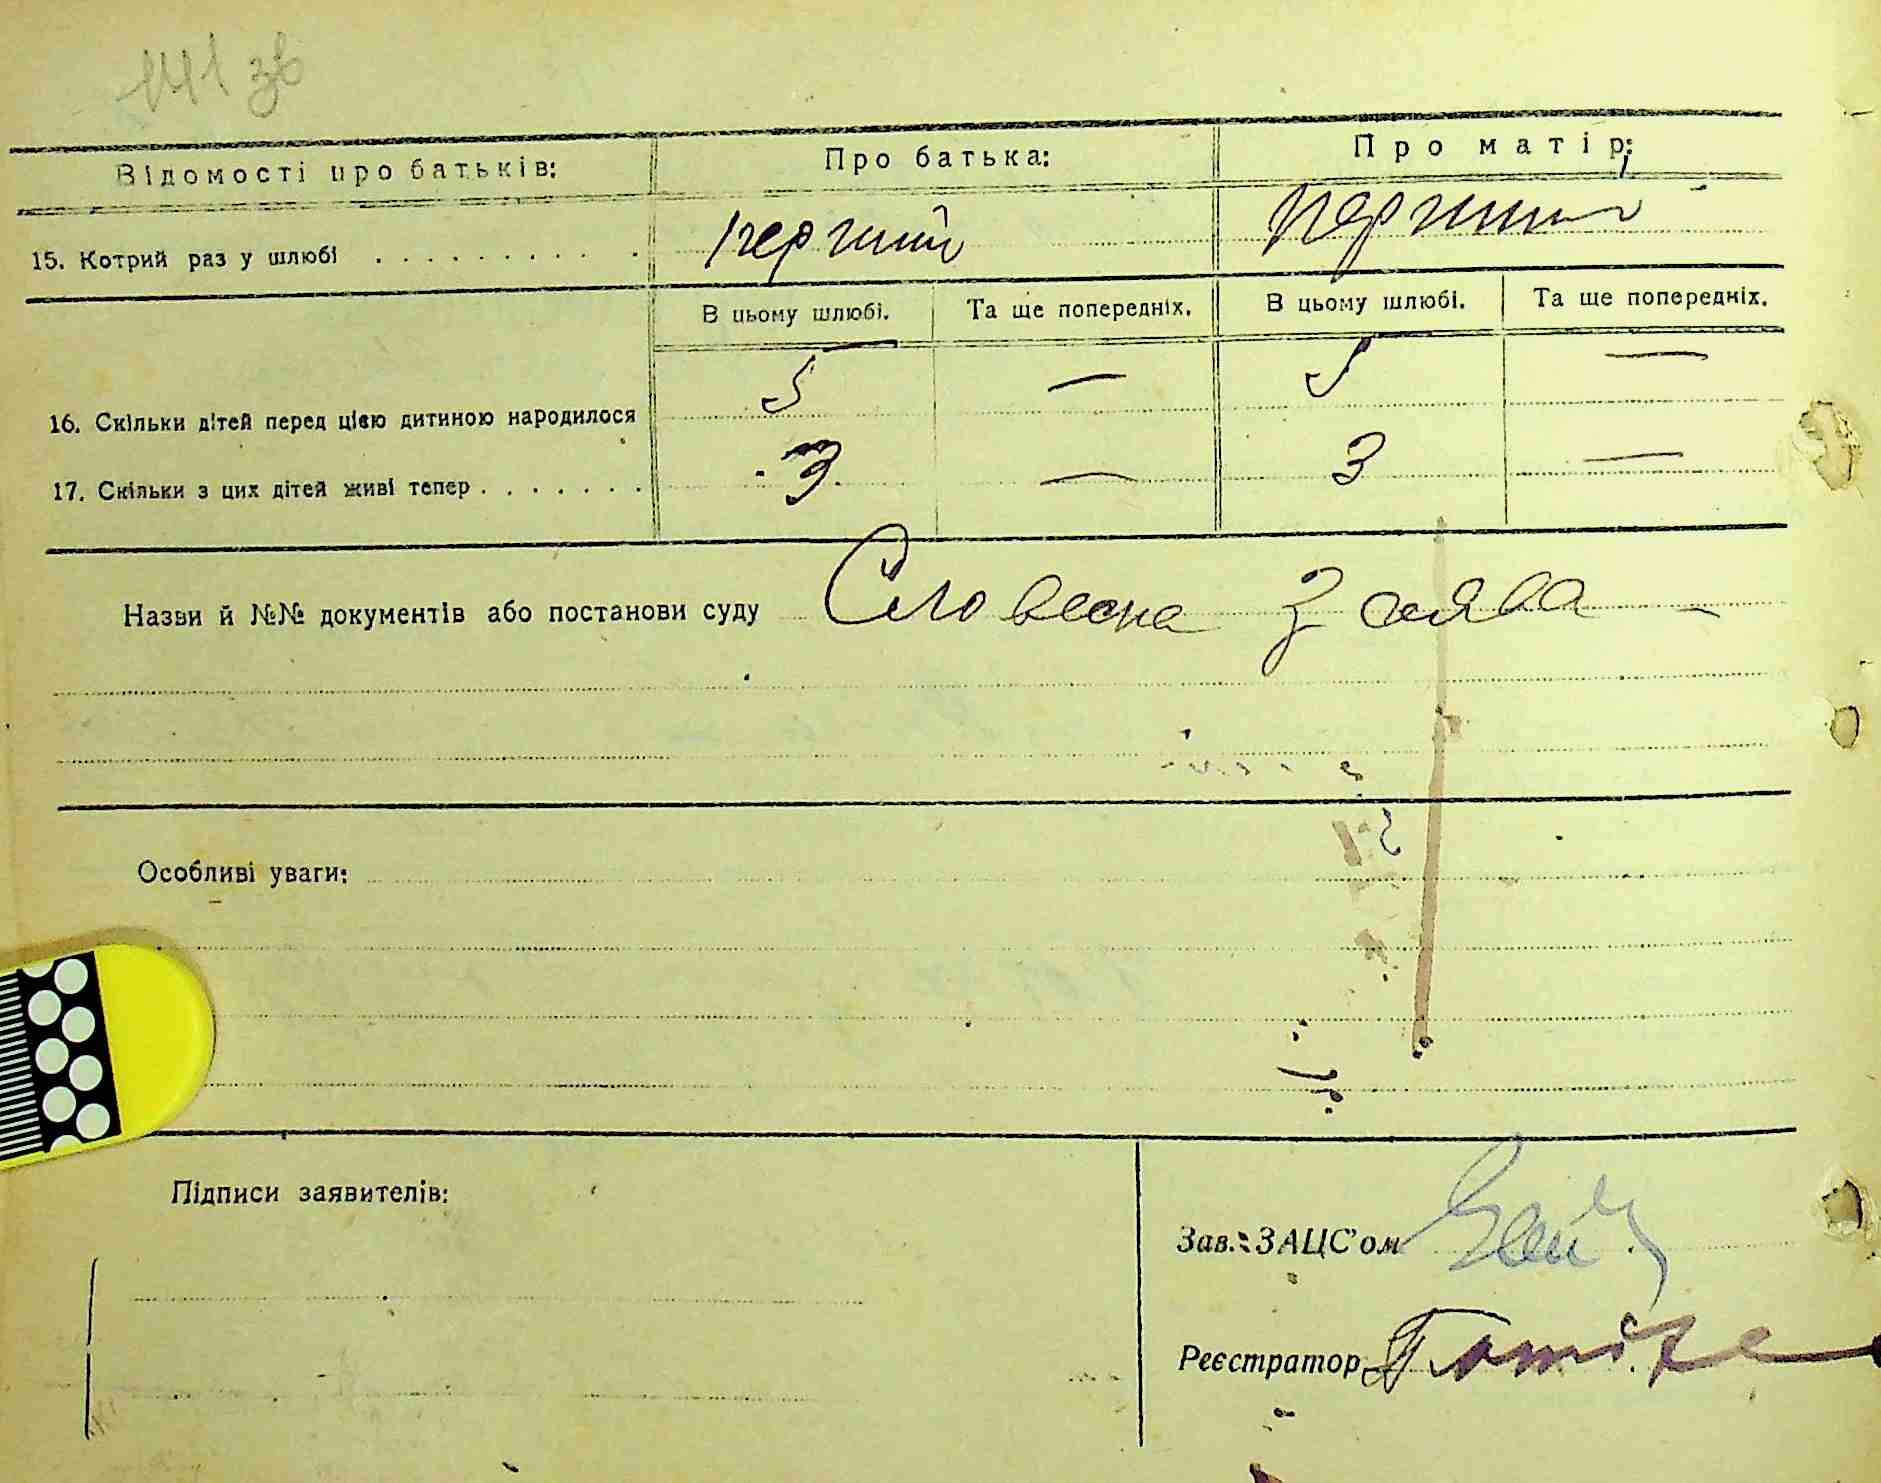 141 зв
Відомості про батьків: Про батька: Про матір:
15. Котрий раз у шлюбі . . . . . . . . . . перший перший
В цьому шлюбі. Та ще попередніх. В цьому шлюбі. Та ще попередніх.
16. Скільки дітей перед цією дитиною народилося 5 — 5 —
17. Скільки з цих дітей живі тепер . . . . . . . 3 — 3 —
Назви й №№ документів або постанови суду Словесна заява —
Особливі уваги:
Підписи заявителів:
Зав. ЗАЦС'ом
Реєстратор